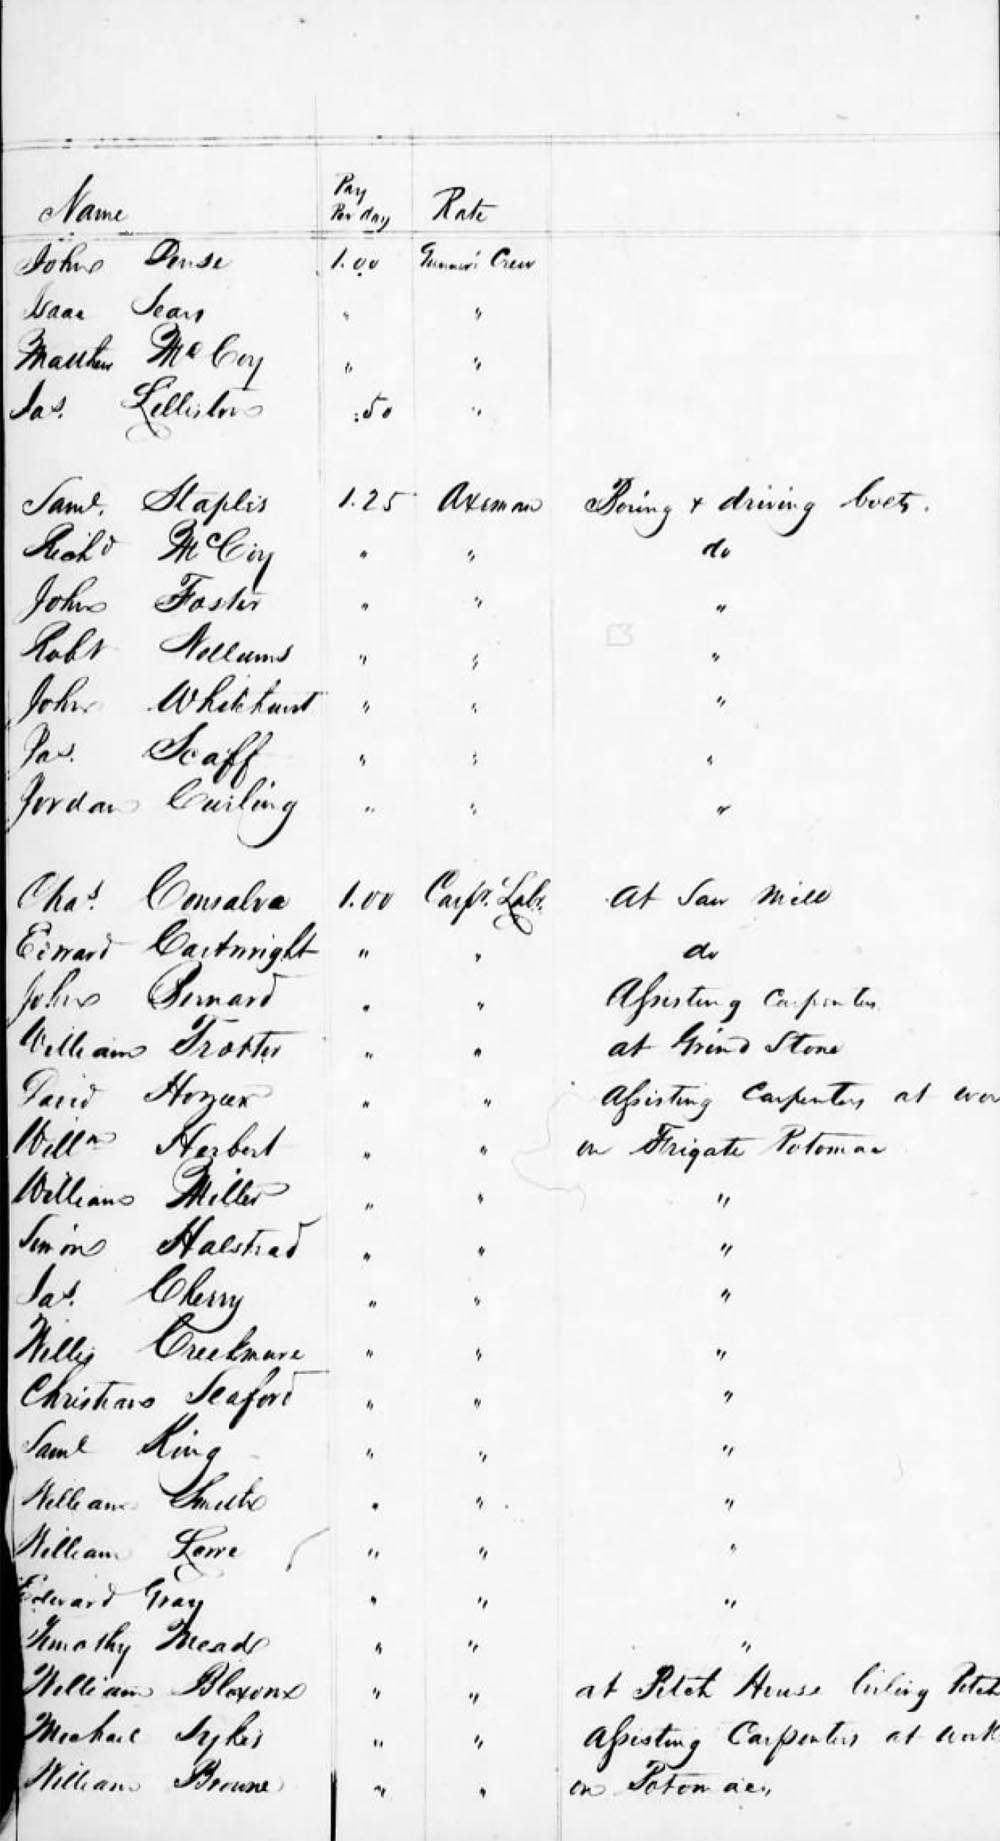 Name Pay Per day Rate
John Dense 1.00 Gunner's Crew
Isaac Sears " "
Matthew McCoy " "
Jas. Lelliston .50 "
Saml. Staples 1.25 Axeman Boring & driving bolts.
Richd McCoy " " do
John Foster " " "
Robt Nellums " " "
John Whitehurst " " "
Jas. Scaff " " "
Jordan Curling " " "
Chas. Consalva 1.00 Carpr. Labr. At Saw Mill
Edward Cartwright " " do
John Bernard " " Assisting Carpenters
William Trotter " " at Grind Stone
David " " Assisting Carpenters at wor
Willm Herbert " " on Frigate Potomac
William Miller " " "
Simon Halstead " " "
Jas. Cherry " " "
Willis Creekmure " " "
Christian Seaford " " "
Saml King " " "
William Smith " " "
William Lowe " " "
Edward Gray " " "
Timothy Meads " " "
William Bloxom " " at Pitch House boiling Pitch
Michael Sykes " " Assisting Carpenters at work
William Browne " " on Potomac